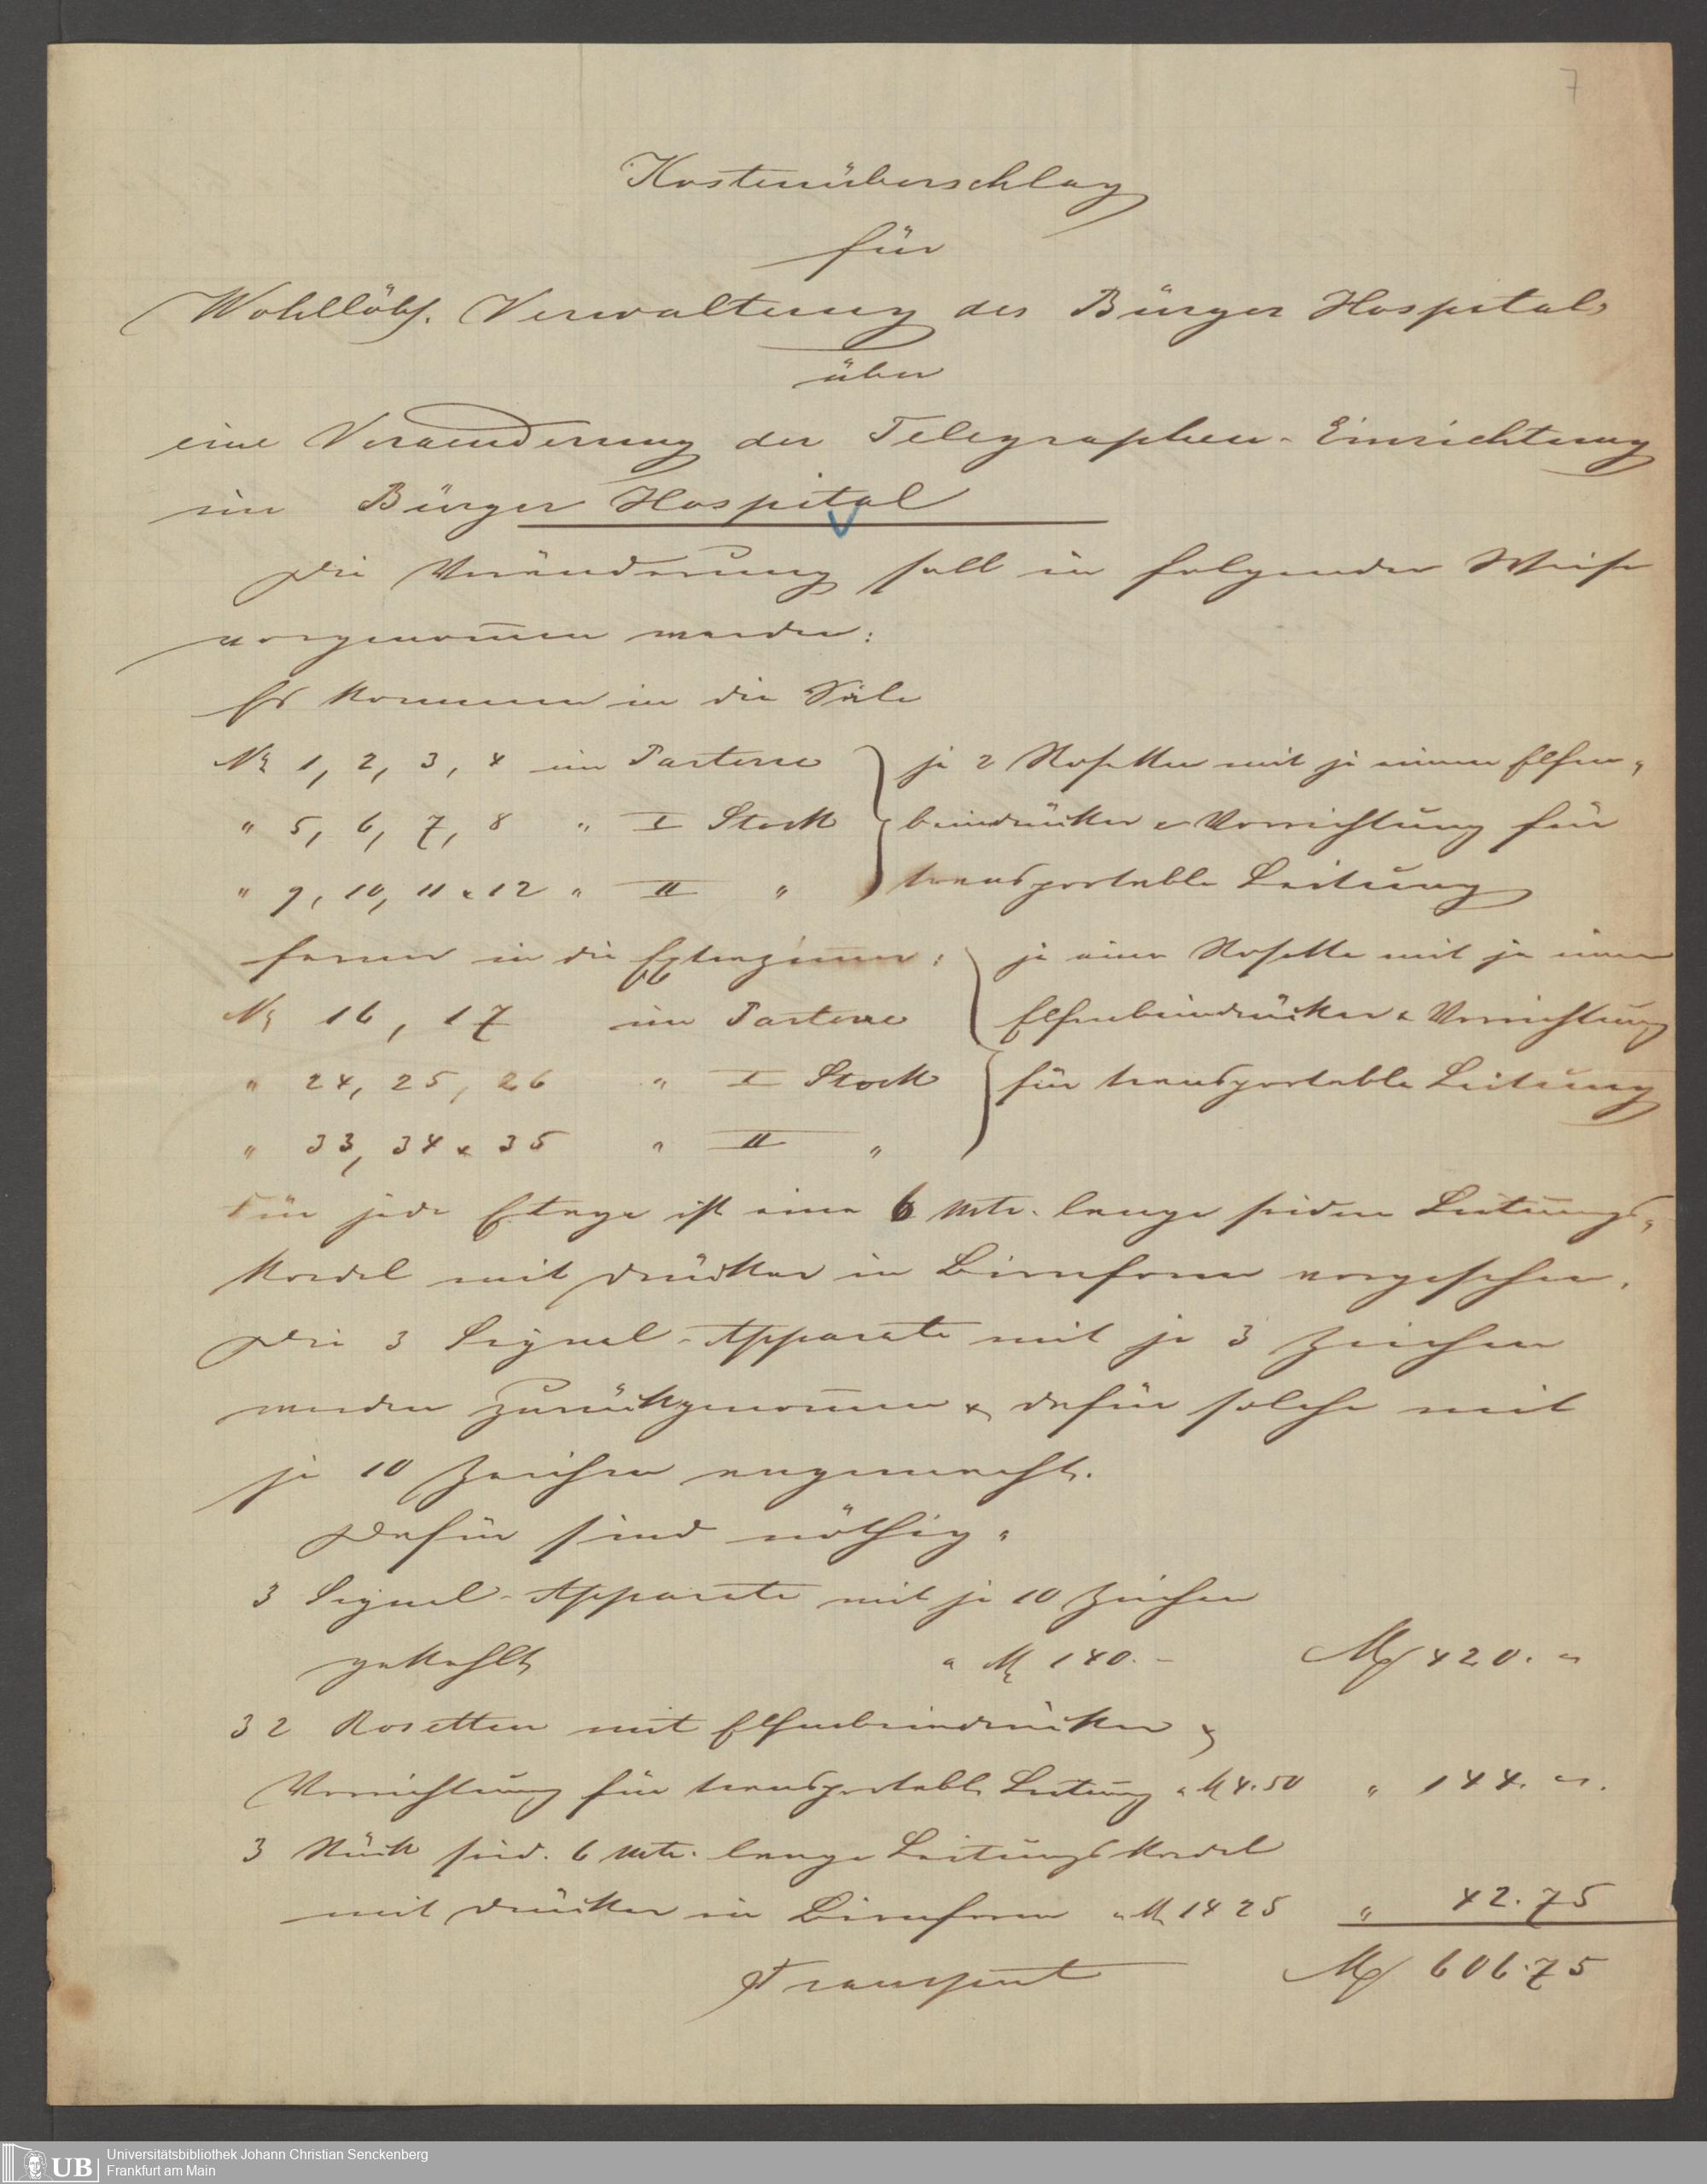 7
Kostenüberschlag
für
Wohllöbl. Verwaltung des Bürger Hospitals
über
eine Veraenderung der Telegraphen-Einrichtung
im Bürger Hospital
Die Veränderung soll in folgender Weise
vorgenom̅en werden:
Es kommen in die Säle
No 1, 2, 3, 4 im Parterre } je 2 Rosetten mit je einem Elfen„
" 5, 6, 7, 8 " I Stock } beindrücker & Vorrichtung für
" 9, 10, 11 & 12 " II " } transportable Leitung
ferner in die Extrazim̅er: } je eine Rosette mit je einem
No 16, 17 im Parterre } Elfenbeindrücker & Vorrichtung
" 24, 25, 26 " I Stock } für transportable Leitung
" 33, 34 & 35 " II "
Für jede Etage ist eine 6 Mtr. lange seidene Leitungs„
kordel mit Drücker in Birnform vorgesehen.
Die 3 Signal-Apparate mit je 3 Zeichen
werden zurückgenom̅en & dafür solche mit
je 10 Zeichen angemacht.
Dafür sind nöthig:
3 Signal-Apparate mit je 10 Zeichen
gekehlt a M 140.- M 420. "
32 Rosetten mit Elfenbeindrücker &
Vorrichtung für transportable Leitung a M 4.50 " 144. "
3 Stück seid. 6 Mtr. lange Leitungskordel
mit Drücker in Birnform a M 14 25 " 42.75
Transport M 606.75
UB Universitätsbibliothek Johann Christian Senckenberg
Frankfurt am Main